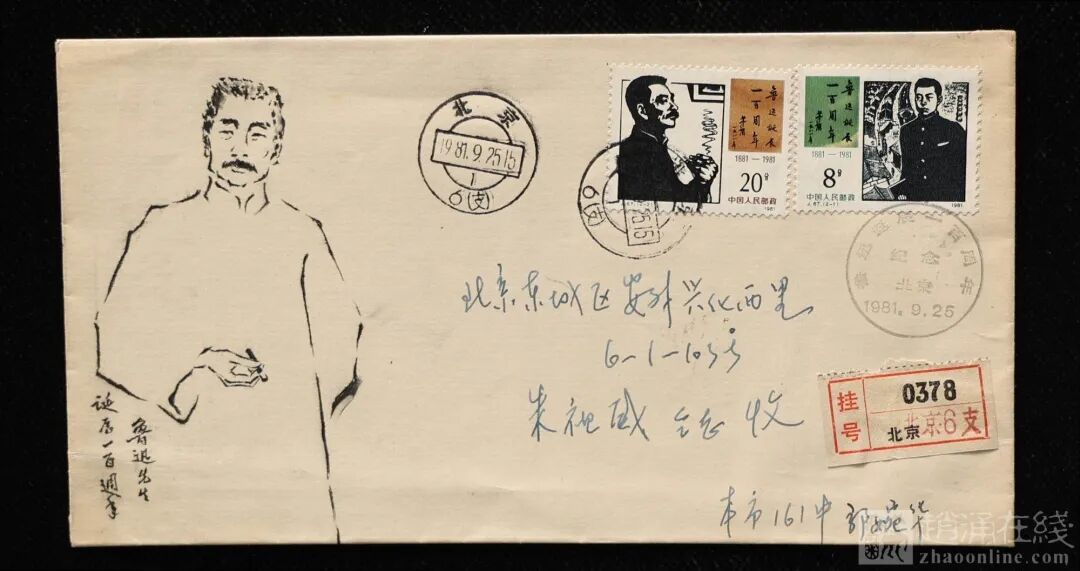 北京
1981.9.25 15
1
6(支)
鲁迅诞辰
一百周年
1881—1981
20分
中国人民邮政
1981
鲁迅诞辰
一百周年
1881—1981
8分
中国人民邮政
J.67.(2-1)
1981
25 15
6(支)
鲁迅诞辰一百周年
纪念
北京
1981.9.25
北京东城区安外兴化西里
6-1-103号
朱祖威 收
挂号
0378
北京
北京6支
本市161中
鲁迅先生
诞辰一百週年
赵涌在线
zhaoonline.com